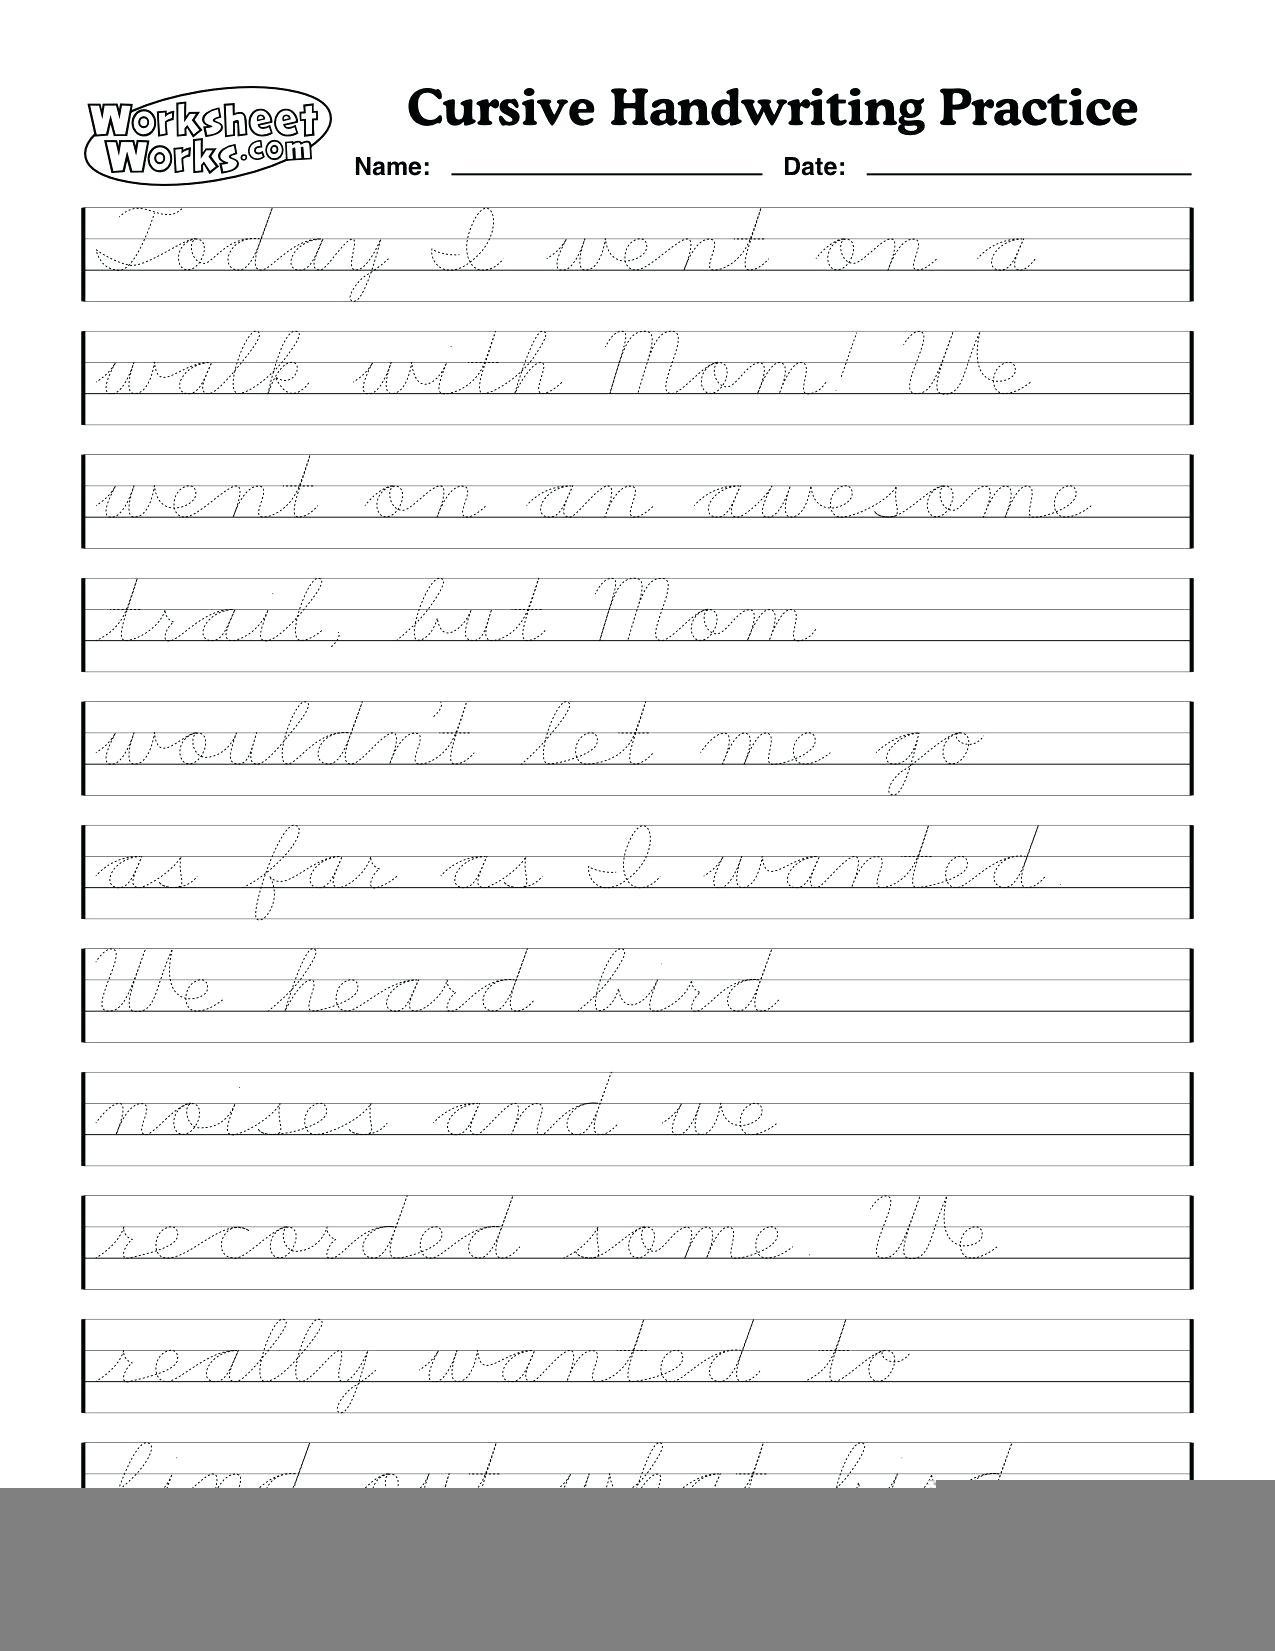 Worksheet
Works.com
Cursive Handwriting Practice
Name: Date:
Today I went on a
walk with Mom! We
went on an awesome
trail, but Mom
wouldn't let me go
as far as I wanted.
We heard bird
noises and we
recorded some. We
really wanted to
find out what bird